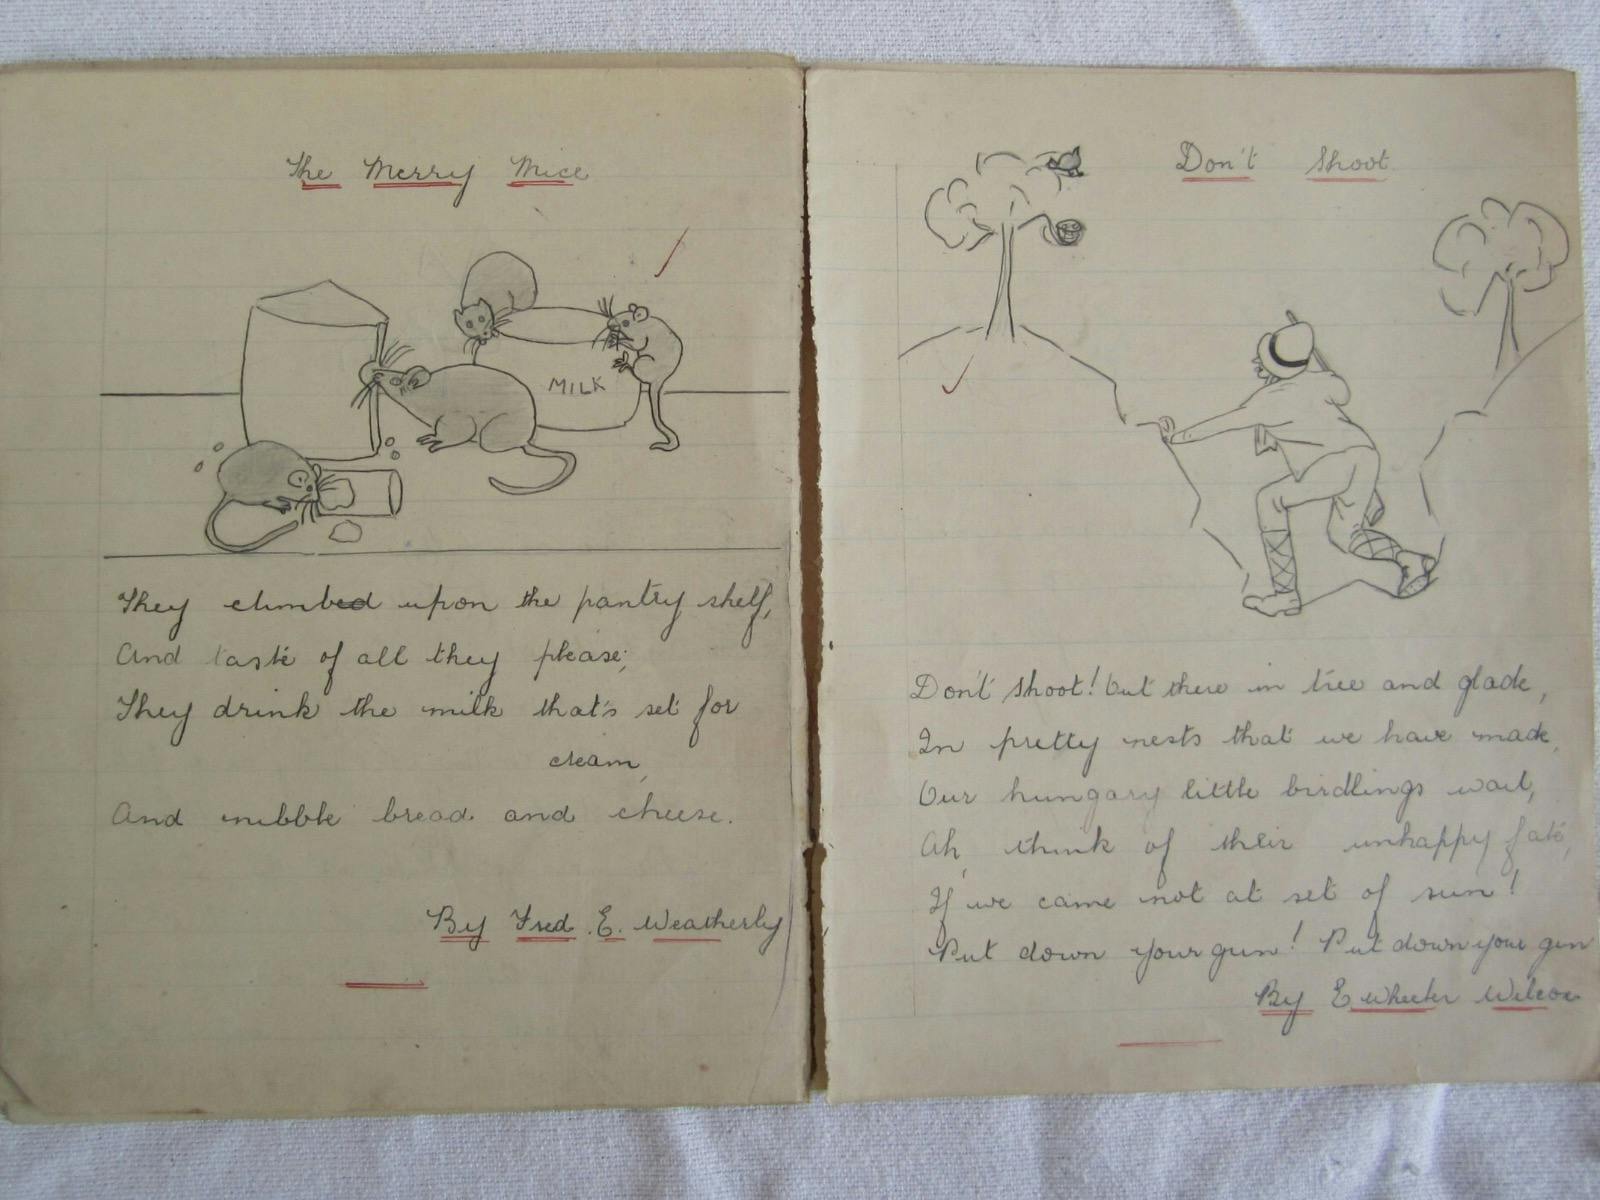 The Merry Mice
MILK
They climbed upon the pantry shelf,
And taste of all they please;
They drink the milk that's set for
cream,
And nibble bread and cheese.
By Fred. E. Weatherly
Don't Shoot
Don't shoot! Out there in tree and glade,
In pretty nests that we have made,
Our hungary little birdlings wait,
Ah, think of their unhappy fate,
If we came not at set of sun!
Put down your gun! Put down your gun
By E Wheeler Wilcox